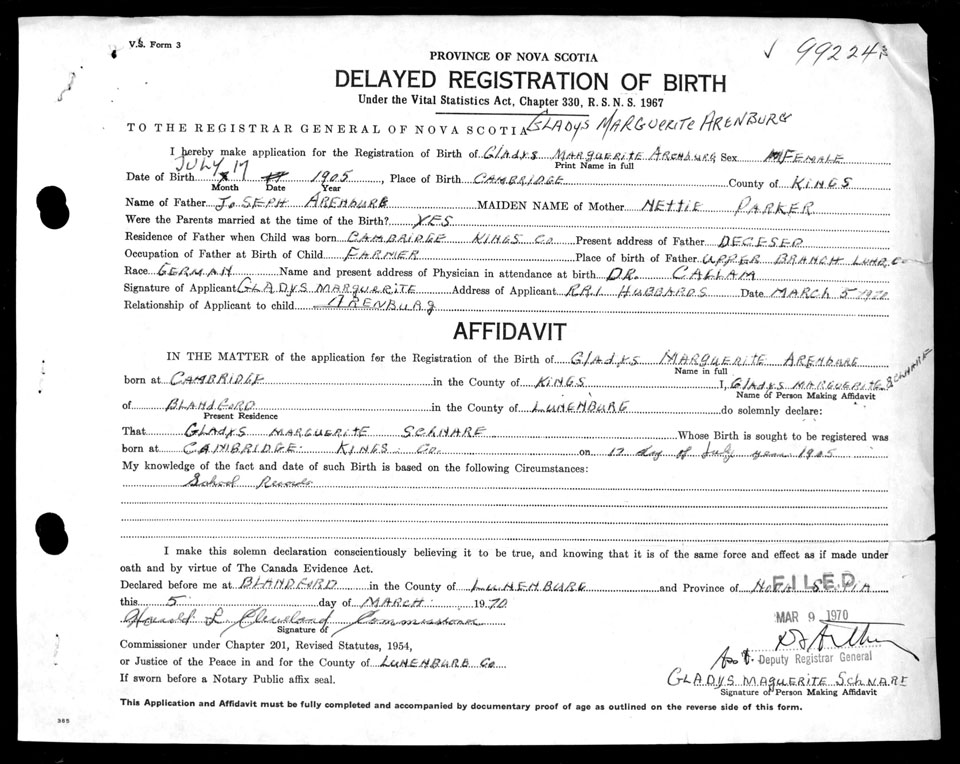 V.S. Form 3
99224
PROVINCE OF NOVA SCOTIA
DELAYED REGISTRATION OF BIRTH
Under the Vital Statistics Act, Chapter 330, R.S.N.S. 1967
TO THE REGISTRAR GENERAL OF NOVA SCOTIA GLADYS MARGUERITE ARENBURG
I hereby make application for the Registration of Birth of GLADYS MARGUERITE ARENBURG Sex FEMALE
Print Name in full
JULY 17
Date of Birth 1905, Place of Birth CAMBRIDGE County of KINGS
Month Date Year
Name of Father JOSEPH ARENBURG MAIDEN NAME of Mother NETTIE PARKER
Were the Parents married at the time of the Birth? YES
Residence of Father when Child was born CAMBRIDGE KINGS CO Present address of Father DECESED
Occupation of Father at Birth of Child FARMER Place of birth of Father UPPER BRANCH LUNB. CO
Race GERMAN Name and present address of Physician in attendance at birth DR. CALLAM
Signature of Applicant GLADYS MARGUERITE Address of Applicant R.R.1 HUBBARDS Date MARCH 5 1970
Relationship of Applicant to child ARENBURG
AFFIDAVIT
IN THE MATTER of the application for the Registration of the Birth of GLADYS MARGUERITE ARENBURG
Name in full
born at CAMBRIDGE in the County of KINGS I, GLADYS MARGUERITE SCHNARE
Name of Person Making Affidavit
of BLANDFORD in the County of LUNENBURG do solemnly declare:
Present Residence
That GLADYS MARGUERITE SCHNARE Whose Birth is sought to be registered was
born at CAMBRIDGE KINGS CO. on 17 day of July year 1905
My knowledge of the fact and date of such Birth is based on the following Circumstances:
School Records
I make this solemn declaration conscientiously believing it to be true, and knowing that it is of the same force and effect as if made under
oath and by virtue of The Canada Evidence Act.
Declared before me at BLANDFORD in the County of LUNENBURG and Province of NOVA SCOTIA
FILED
this 5 day of MARCH 1970
MAR 9 1970
Harold L Cleveland Commissioner
Signature of
Commissioner under Chapter 201, Revised Statutes, 1954,
Deputy Registrar General
or Justice of the Peace in and for the County of LUNENBURG CO
If sworn before a Notary Public affix seal.
GLADYS MAGUERITE SCHNARE
Signature of Person Making Affidavit
This Application and Affidavit must be fully completed and accompanied by documentary proof of age as outlined on the reverse side of this form.
385